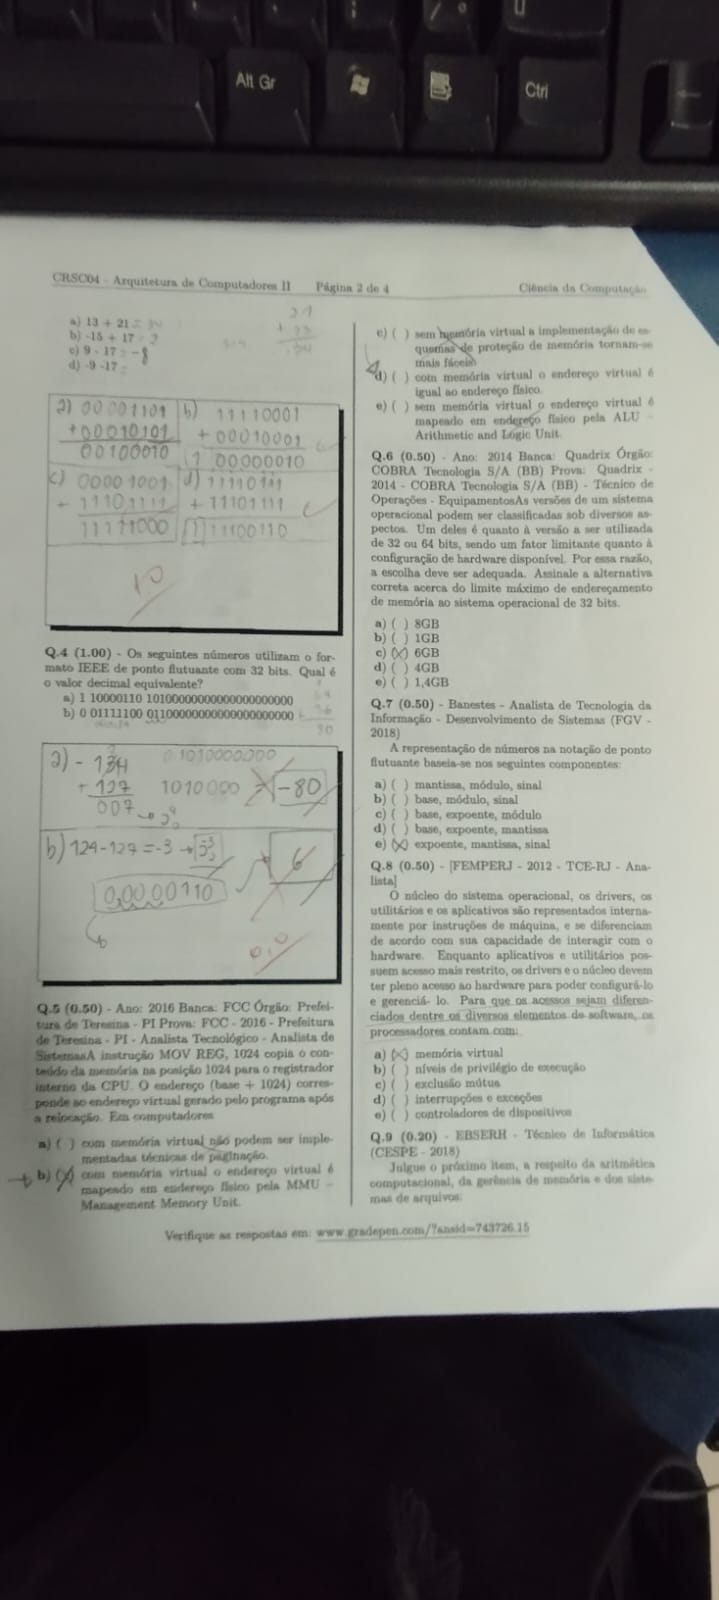 Alt Gr
Ctrl
CRSC04 - Arquitetura de Computadores II Página 2 de 4 Ciência da Computação
a) 13 + 21 = 34
b) -15 + 17 = 2
c) 9 - 17 = -8
d) -9 -17 =
a) 00001101
+00010101
00100010
b) 11110001
+ 00010001
1 00000010
c) 00001001
+ 11101111
11111000
d) 11110111
+ 11101111
1 11100110
1.0
Q.4 (1.00) - Os seguintes números utilizam o for-
mato IEEE de ponto flutuante com 32 bits. Qual é
o valor decimal equivalente?
a) 1 10000110 10100000000000000000000
b) 0 01111100 01100000000000000000000
a) - 134
+ 127
007
0.1010000.000
1010000
-80
b) 124-127 = -3
6
0,00.00110
0,0
Q.5 (0.50) - Ano: 2016 Banca: FCC Órgão: Prefei-
tura de Teresina - PI Prova: FCC - 2016 - Prefeitura
de Teresina - PI - Analista Tecnológico - Analista de
SistemasA instrução MOV REG, 1024 copia o con-
teúdo da memória na posição 1024 para o registrador
interno da CPU. O endereço (base + 1024) corres-
ponde ao endereço virtual gerado pelo programa após
a relocação. Em computadores
a) ( ) com memória virtual não podem ser imple-
mentadas técnicas de paginação.
b) (X) com memória virtual o endereço virtual é
mapeado em endereço físico pela MMU -
Management Memory Unit.
c) ( ) sem memória virtual a implementação de es-
quemas de proteção de memória tornam-se
mais fáceis
d) ( ) com memória virtual o endereço virtual é
igual ao endereço físico.
e) ( ) sem memória virtual o endereço virtual é
mapeado em endereço físico pela ALU -
Arithmetic and Logic Unit.
Q.6 (0.50) - Ano: 2014 Banca: Quadrix Órgão:
COBRA Tecnologia S/A (BB) Prova: Quadrix -
2014 - COBRA Tecnologia S/A (BB) - Técnico de
Operações - EquipamentosAs versões de um sistema
operacional podem ser classificadas sob diversos as-
pectos. Um deles é quanto à versão a ser utilizada
de 32 ou 64 bits, sendo um fator limitante quanto à
configuração de hardware disponível. Por essa razão,
a escolha deve ser adequada. Assinale a alternativa
correta acerca do limite máximo de endereçamento
de memória ao sistema operacional de 32 bits.
a) ( ) 8GB
b) ( ) 1GB
c) (X) 6GB
d) ( ) 4GB
e) ( ) 1,4GB
Q.7 (0.50) - Banestes - Analista de Tecnologia da
Informação - Desenvolvimento de Sistemas (FGV -
2018)
A representação de números na notação de ponto
flutuante baseia-se nos seguintes componentes:
a) ( ) mantissa, módulo, sinal
b) ( ) base, módulo, sinal
c) ( ) base, expoente, módulo
d) ( ) base, expoente, mantissa
e) (X) expoente, mantissa, sinal
Q.8 (0.50) - [FEMPERJ - 2012 - TCE-RJ - Ana-
lista]
O núcleo do sistema operacional, os drivers, os
utilitários e os aplicativos são representados interna-
mente por instruções de máquina, e se diferenciam
de acordo com sua capacidade de interagir com o
hardware. Enquanto aplicativos e utilitários pos-
suem acesso mais restrito, os drivers e o núcleo devem
ter pleno acesso ao hardware para poder configurá-lo
e gerenciá- lo. Para que os acessos sejam diferen-
ciados dentre os diversos elementos de software, os
processadores contam com:
a) (X) memória virtual
b) ( ) níveis de privilégio de execução
c) ( ) exclusão mútua
d) ( ) interrupções e exceções
e) ( ) controladores de dispositivos
Q.9 (0.20) - EBSERH - Técnico de Informática
(CESPE - 2018)
Julgue o próximo item, a respeito da aritmética
computacional, da gerência de memória e dos siste-
mas de arquivos:
Verifique as respostas em: www.gradepen.com/?ansid=743726.15